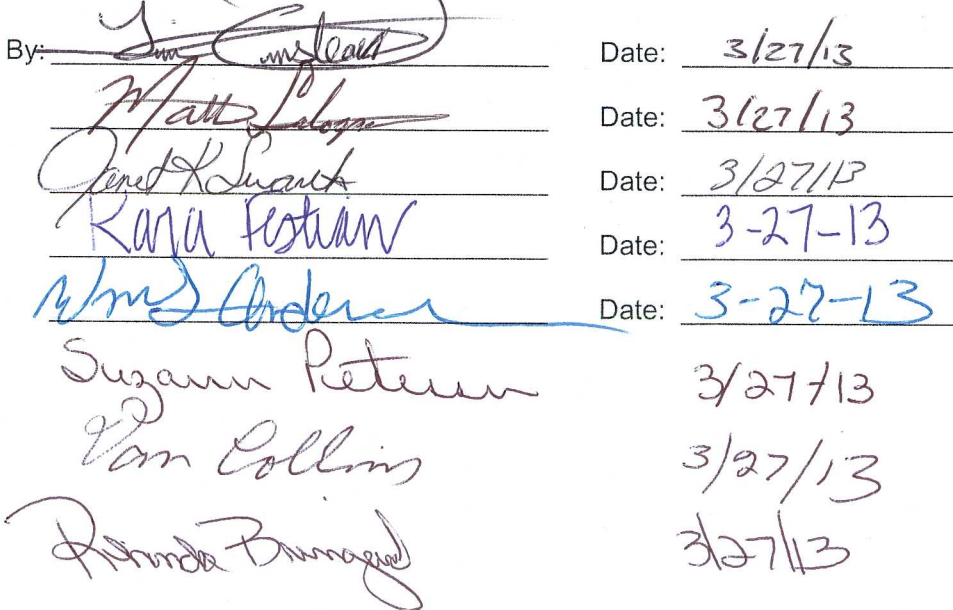 By: Tim Date: 3/27/13
Matt Date: 3/27/13
Janet K Swartz Date: 3/27/13
Kara Festian Date: 3-27-13
Wm Anderson Date: 3-27-13
Suzann Petersen 3/27/13
Pam Collins 3/27/13
Rhonda 3/27/13